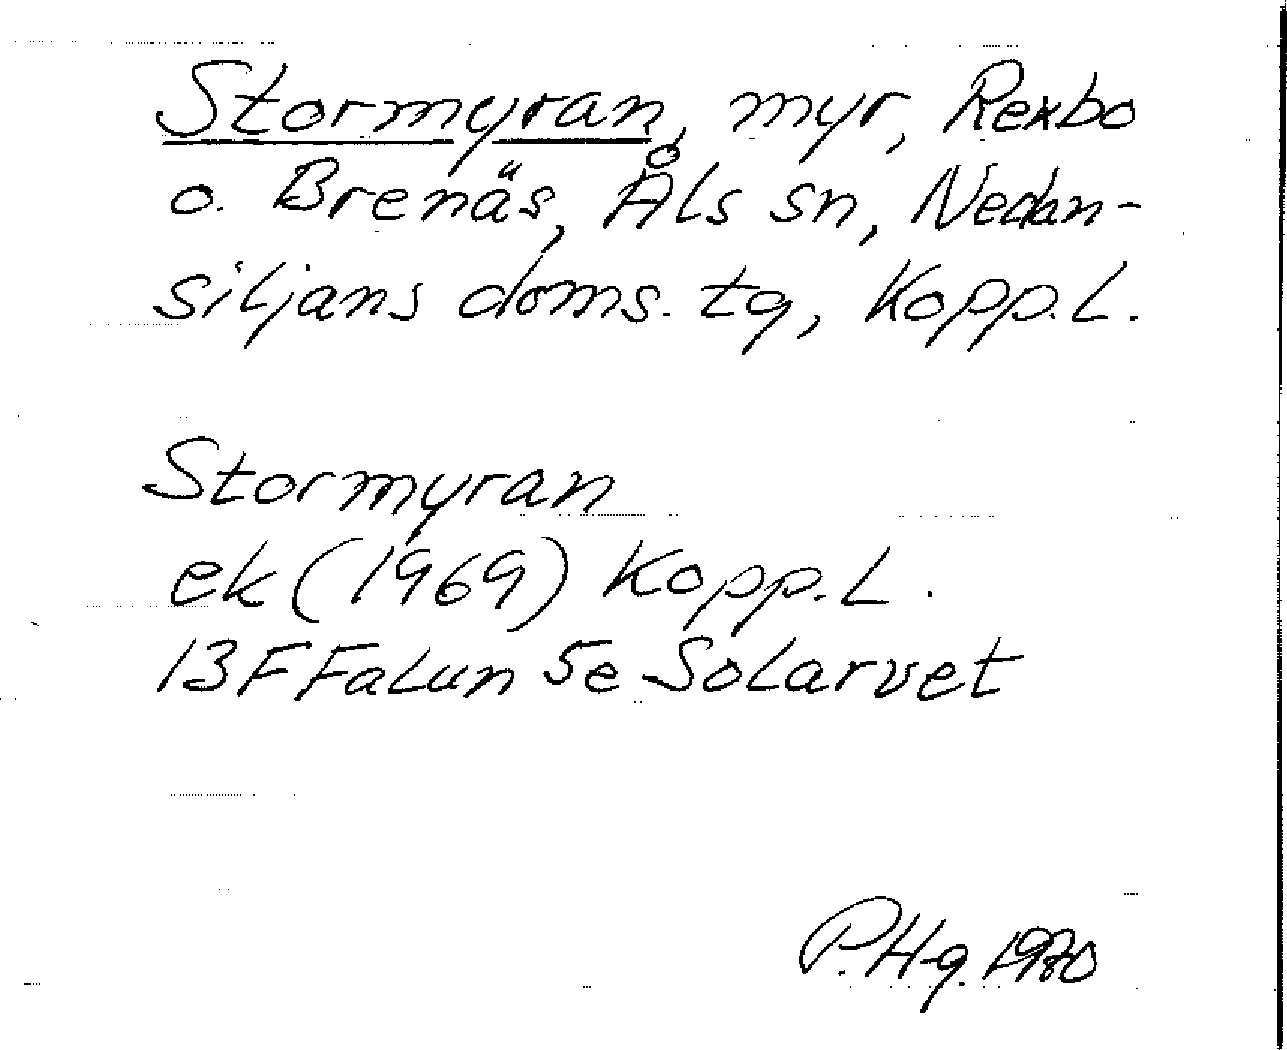 Stormyran, myr, Rexbo
o. Brenäs, Åls sn, Nedan-
siljans doms. tg, Kopp. L.
Stormyran
ek (1969) Kopp. L.
13F Falun 5e Solarvet
P. Hg.